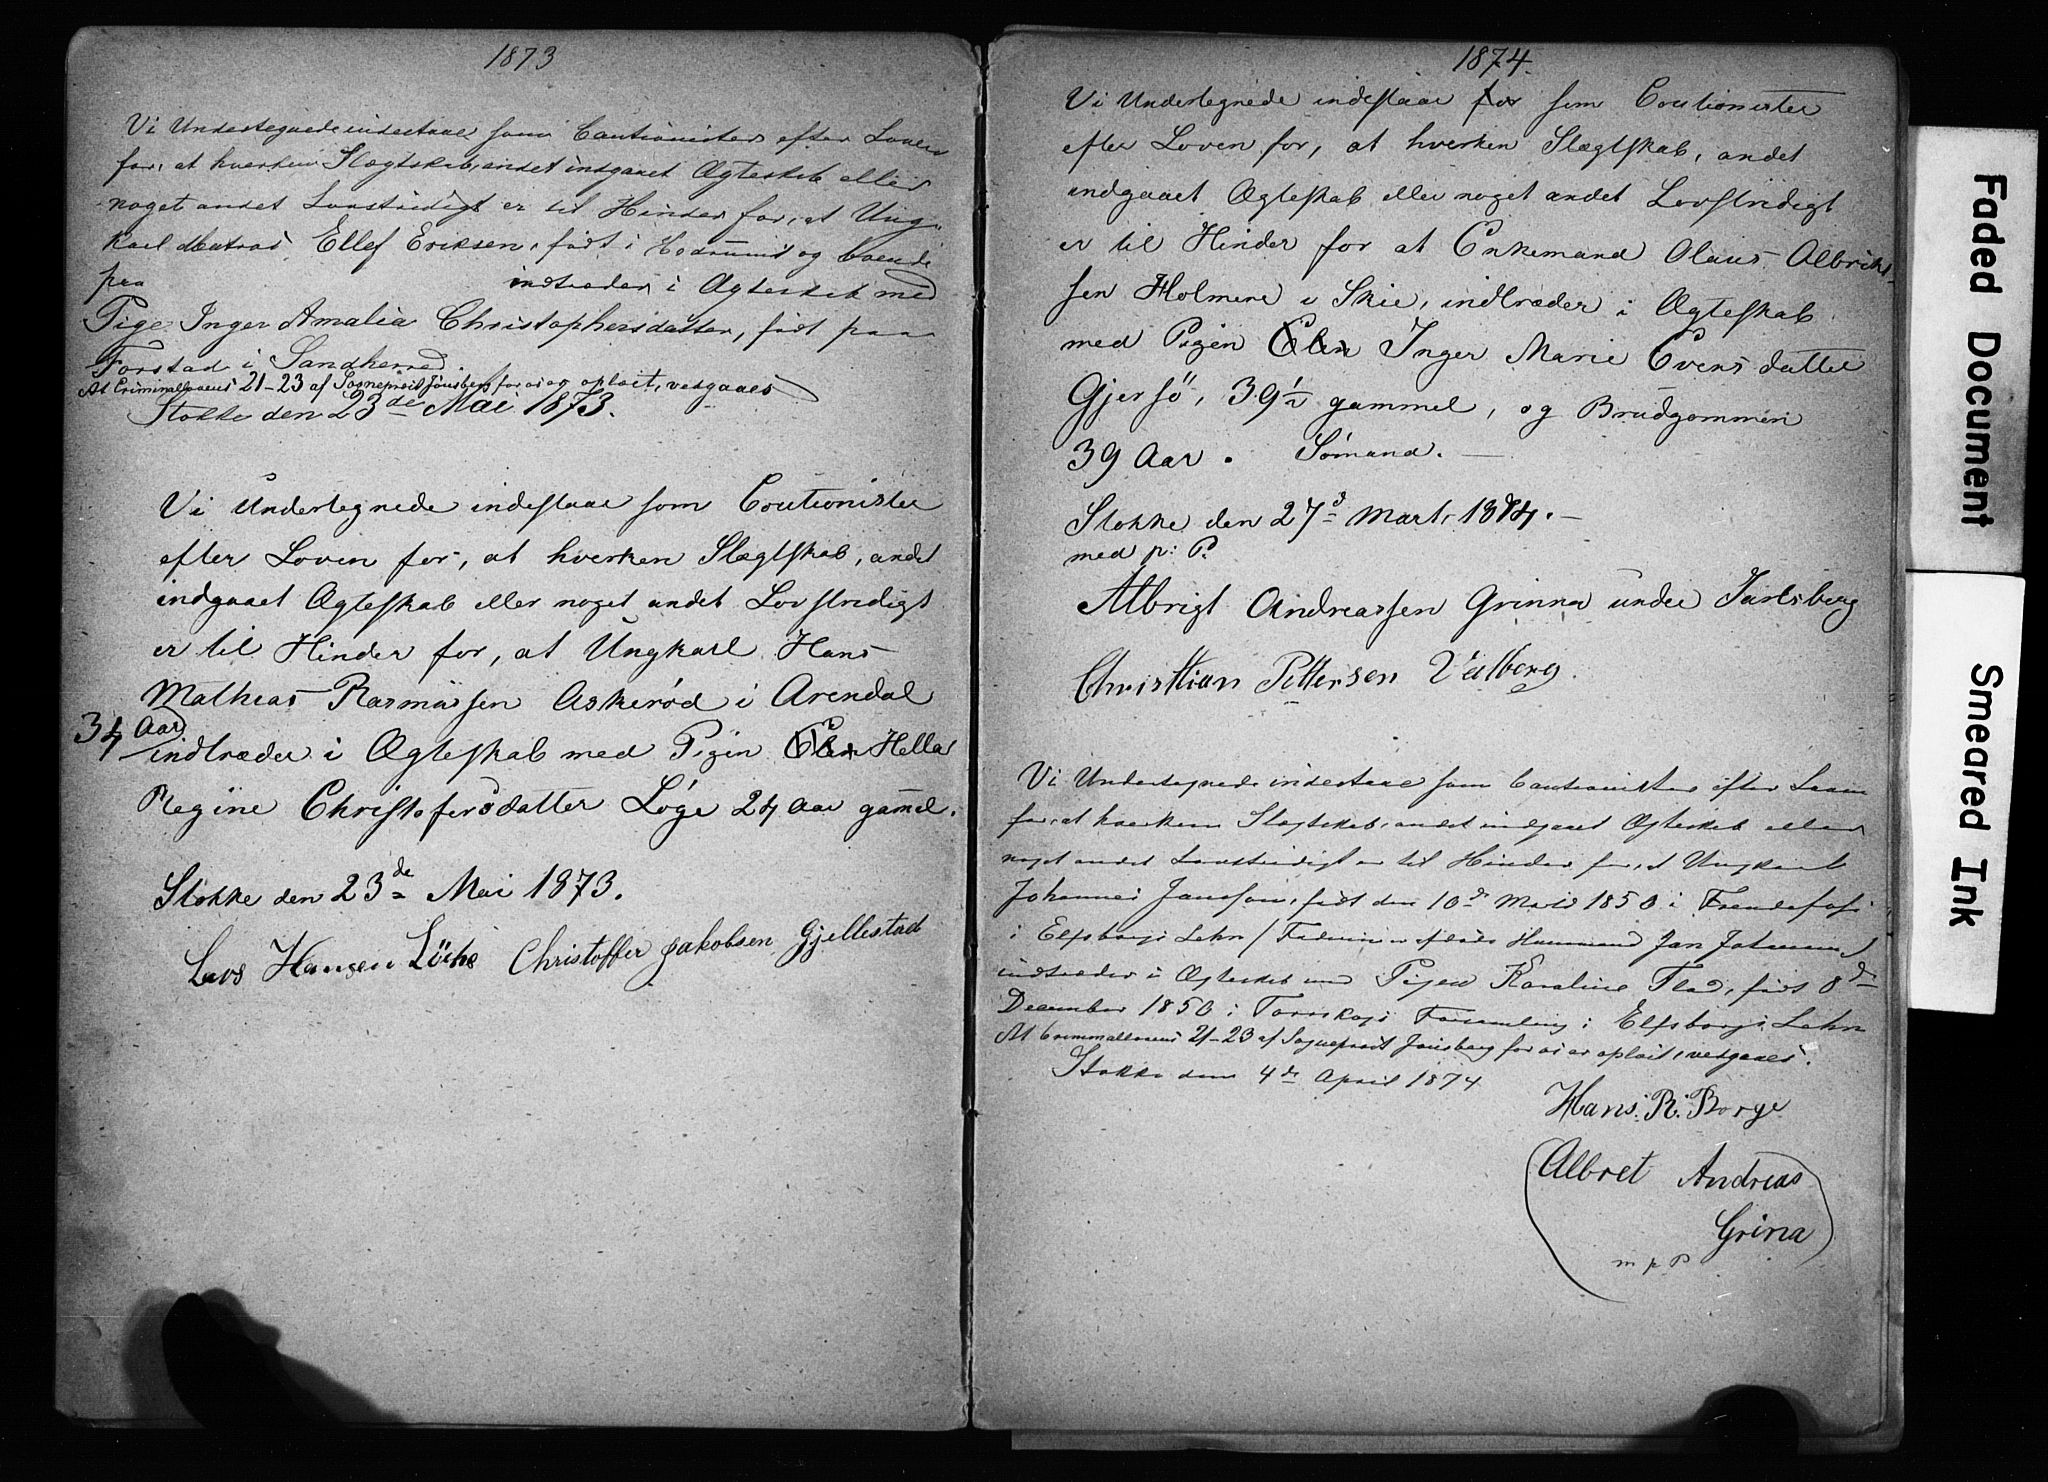 1873
Vi Undertegnede indestaae som Cautionister efter Loven
for, at hverken Slægtskab, andet indgaaet Ægteskab eller
noget andet Lovstridigt er til Hinder for, at Ung-
karl Matros Ellef Eriksen, født i Hedrum og boende
paa indtræder i Ægteskab med
Pige Inger Amalia Christophersdatter, født paa
Forstad i Sandherred.
At Criminallovens 21-23 af Sognepræst Jonsberg for os og oplæst, vedgaaes
Stokke den 23de Mai 1873.
Vi Undertegnede indestaae som Coutionister
efter Loven for, at hverken Slægtskab, andet
indgaaet Ægteskab eller noget andet Lovstridigt
er til Hinder for, at Ungkarl Hans
Mathias Rasmussen Askerød i Arendal
34 Aar indtræder i Ægteskab med Pigen Elen Hella
Regine Christofersdatter Løge 24 Aar gammel.
Stokke den 23de Mai 1873.
Lars Hansen Löke Christoffer Jakobsen Gjellestad
1874.
Vi Undertegnede indestaae for som Coutionister
efter Loven for, at hverken Slægtskab, andet
indgaaet Ægteskab eller noget andet Lovstridigt
er til Hinder for at Enkemand Olaus Albrikt-
sen Holmene i Skie, indtræder i Ægteskab
med Pigen Elen Inger Marie Evensdatter
Gjersö, 39½ gammel, og Brudgommen
39 Aar. Sømand.
Stokke den 27d Mart. 1874.
med p: P.
Albrigt Andreassen Grinna under Jarlsberg
Christian Pettersen Valberg.
Vi Undertegnede indestaae som Cautionister efter Loven
for, at hverken Slægtskab, andet indgaaet Ægteskab eller
noget andet Lovstridigt er til Hinder for, at Ungkarl
Johannes Jansson, født den 10de 1850 i
i Elfsborgs Lehn / Jan
indtræder i Ægteskab med Pigen Karoline Flad, født 8de
December 1850 i Forsamling i Elfsborgs Lehn
At Criminallovens 21-23 af Sognepræst Jonsberg for os er oplæst, vedgaaes.
Stokke den 4de April 1874
Hans R. Borge
Albret Andreas
Grina
m p P
Faded Document
Smeared Ink